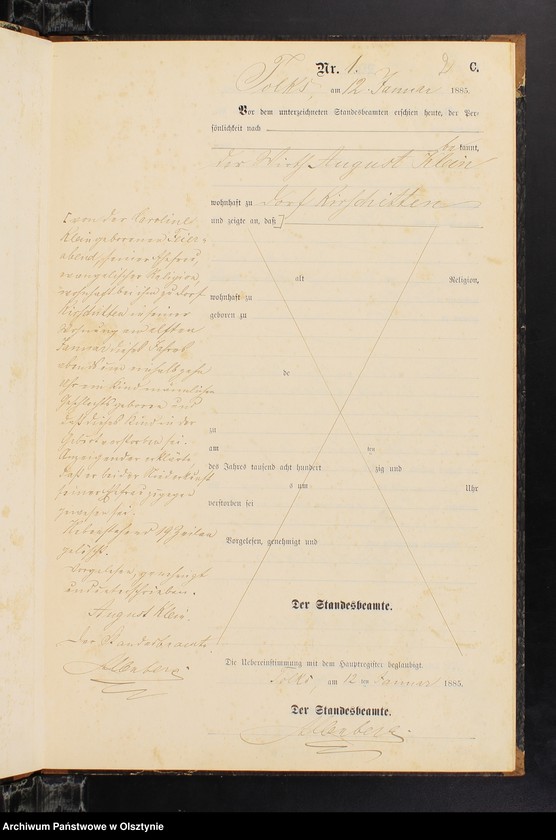 Nr. 1. C.
Tolks, am 12 Januar 1885.
Vor dem unterzeichneten Standesbeamten erschien heute, der Per-
sönlichkeit nach
be kannt,
der Wirth August Klein
wohnhaft zu Dorf Kirschitten
und zeigte an, daß
[von der Caroline
Klein geborenen Feier-
abend, seiner Ehefrau,
evangelischer Religion,
wohnhaft bei ihm zu Dorf
Kirschitten in seiner
Wohnung am elften
Januar dieses Jahres
Abends um einhalb zehn
Uhr ein Kind männlichen
Geschlechts geboren und
daß dieses Kind in der
Geburt verstorben sei.
Anzeigender erklärte
daß er bei der Niederkunft
seiner Ehefrau zugegen
gewesen sei.
Nebenstehend 19 Zeilen
gelöscht.
Vorgelesen, genehmigt
und unterschrieben.
August Klein.
Der Standesbeamte.
alt Religion,
wohnhaft zu
geboren zu
de
zu
am ten
des Jahres tausend acht hundert zig und
s um Uhr
verstorben sei
Vorgelesen, genehmigt und
Der Standesbeamte.
Die Uebereinstimmung mit dem Hauptregister beglaubigt.
Tolks, am 12 ten Januar 1885.
Der Standesbeamte.
Archiwum Państwowe w Olsztynie